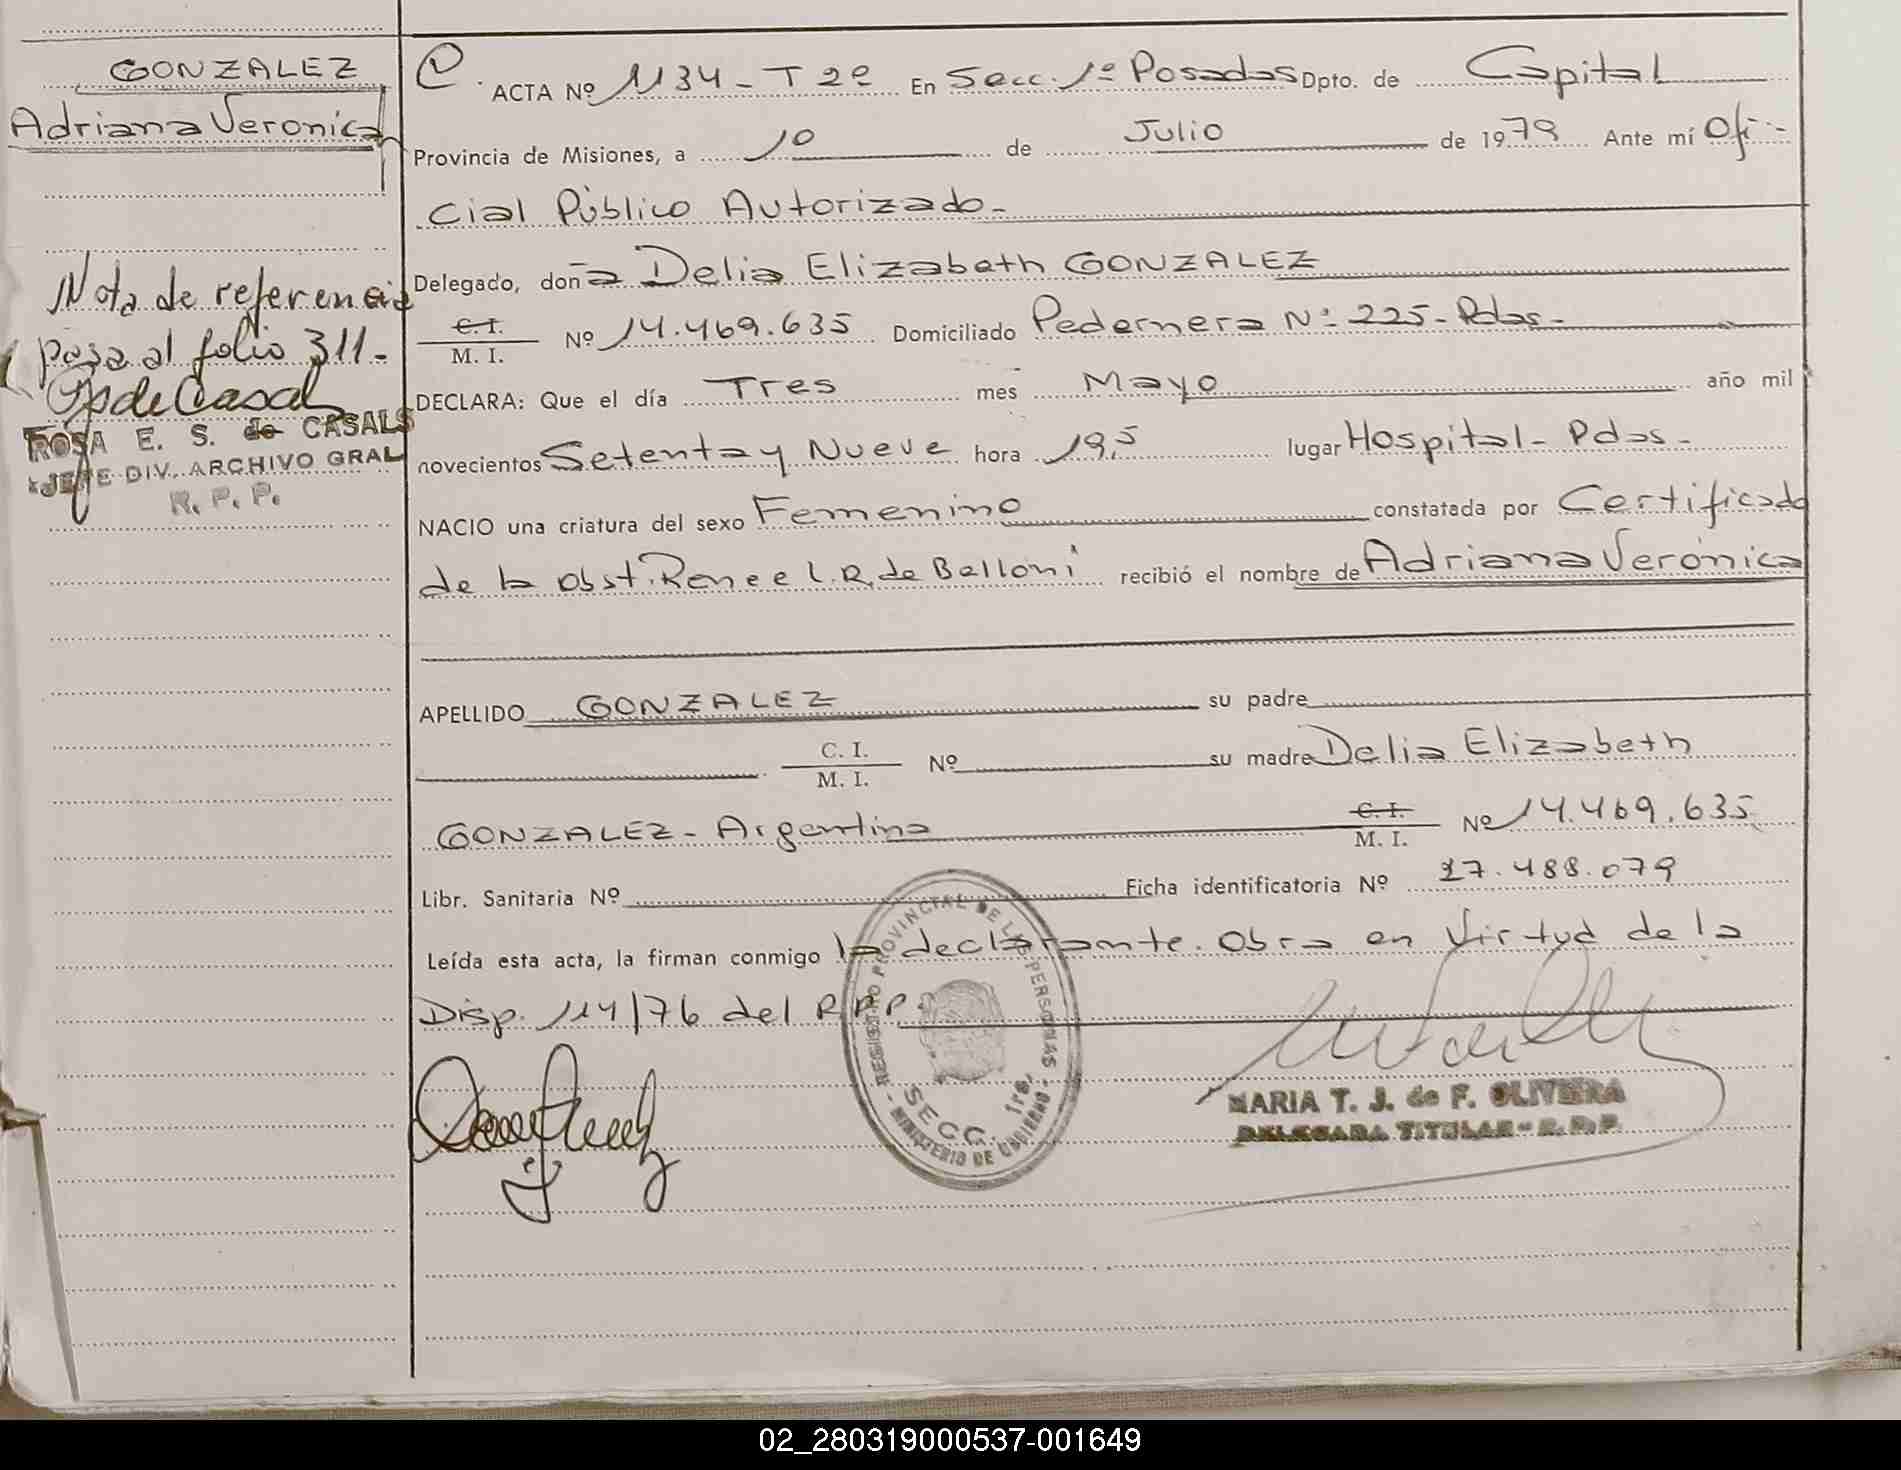 GONZALEZ
Adriana Veronica
Nota de referencia
pasa al folio 311.-
ROSA E. S. de CASALS
JEFE DIV. ARCHIVO GRAL
R. P. P.
ACTA Nº 1134 - T 2º En Secc. 1º Posadas Dpto. de Capital
Provincia de Misiones, a 10 de Julio de 1979 Ante mí Ofi-
cial Público Autorizado.-
Delegado, doña Delia Elizabeth GONZALEZ
C. I.
M. I. Nº 14.469.635 Domiciliado Pedernera Nº 225- Pdas.-
DECLARA: Que el día Tres mes Mayo año mil
novecientos Setenta y Nueve hora 19,5 lugar Hospital- Pdas.-
NACIO una criatura del sexo Femenino constatada por Certificado
de la Obst. Renee L.R. de Belloni recibió el nombre de Adriana Verónica
APELLIDO GONZALEZ su padre
C. I.
M. I. Nº su madre Delia Elizabeth
GONZALEZ - Argentina C. I.
M. I. Nº 14.469.635
Libr. Sanitaria Nº Ficha identificatoria Nº 27.488.079
Leída esta acta, la firman conmigo la declarante. Obra en Virtud de la
Disp. 114/76 del R.P.P.
REGISTRO PROVINCIAL DE LAS PERSONAS - MINISTERIO DE GOBIERNO -
SECC. 1ra.
MARIA T. J. de F. OLIVEIRA
DELEGADA TITULAR - R. P. P.
02_280319000537-001649